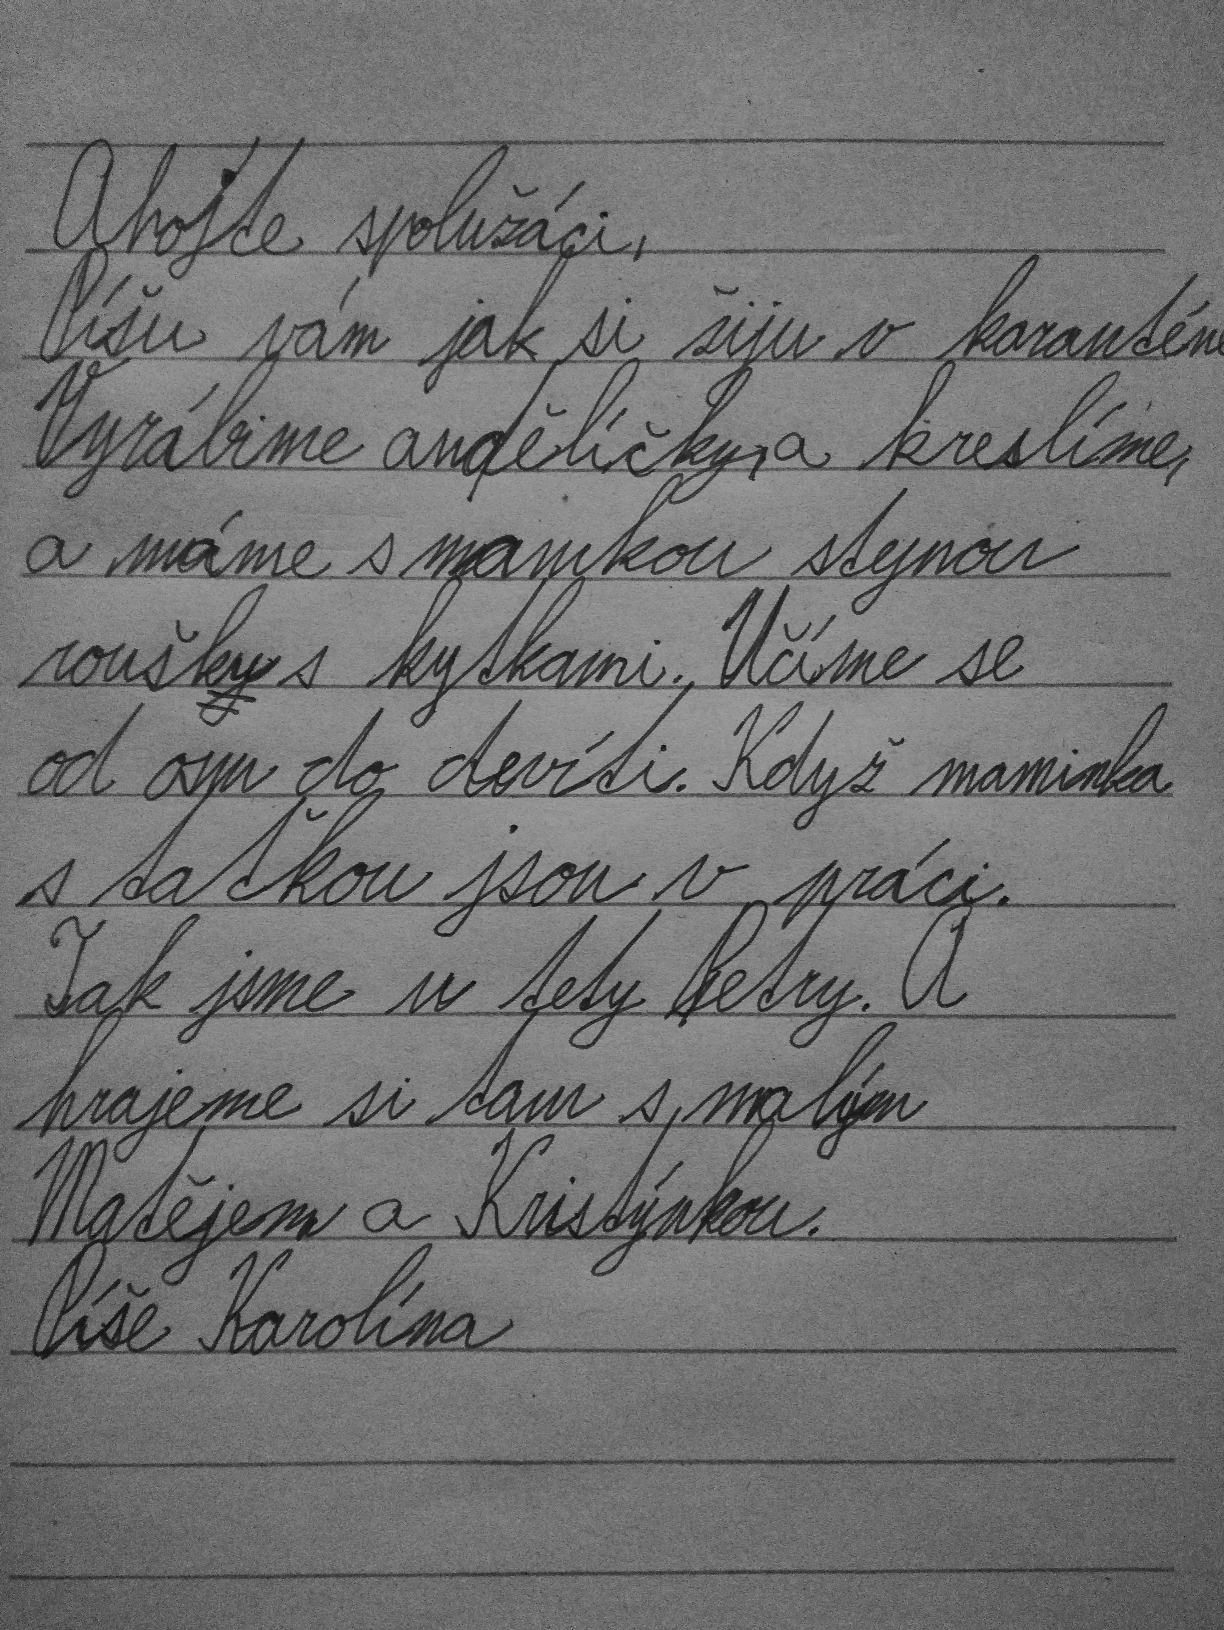 Ahojte spolužáci,
Píšu vám jak si žiju v karanténě
Vyrábíme andělíčky, a kreslíme,
a máme s mamkou stejnou
roušky s kytkami. Učíme se
od osmi do devíti. Když maminka
s taťkou jsou v práci.
Tak jsme u tety Petry. A
hrajeme si tam s malým
Matějem a Kristýnkou.
Píše Karolína